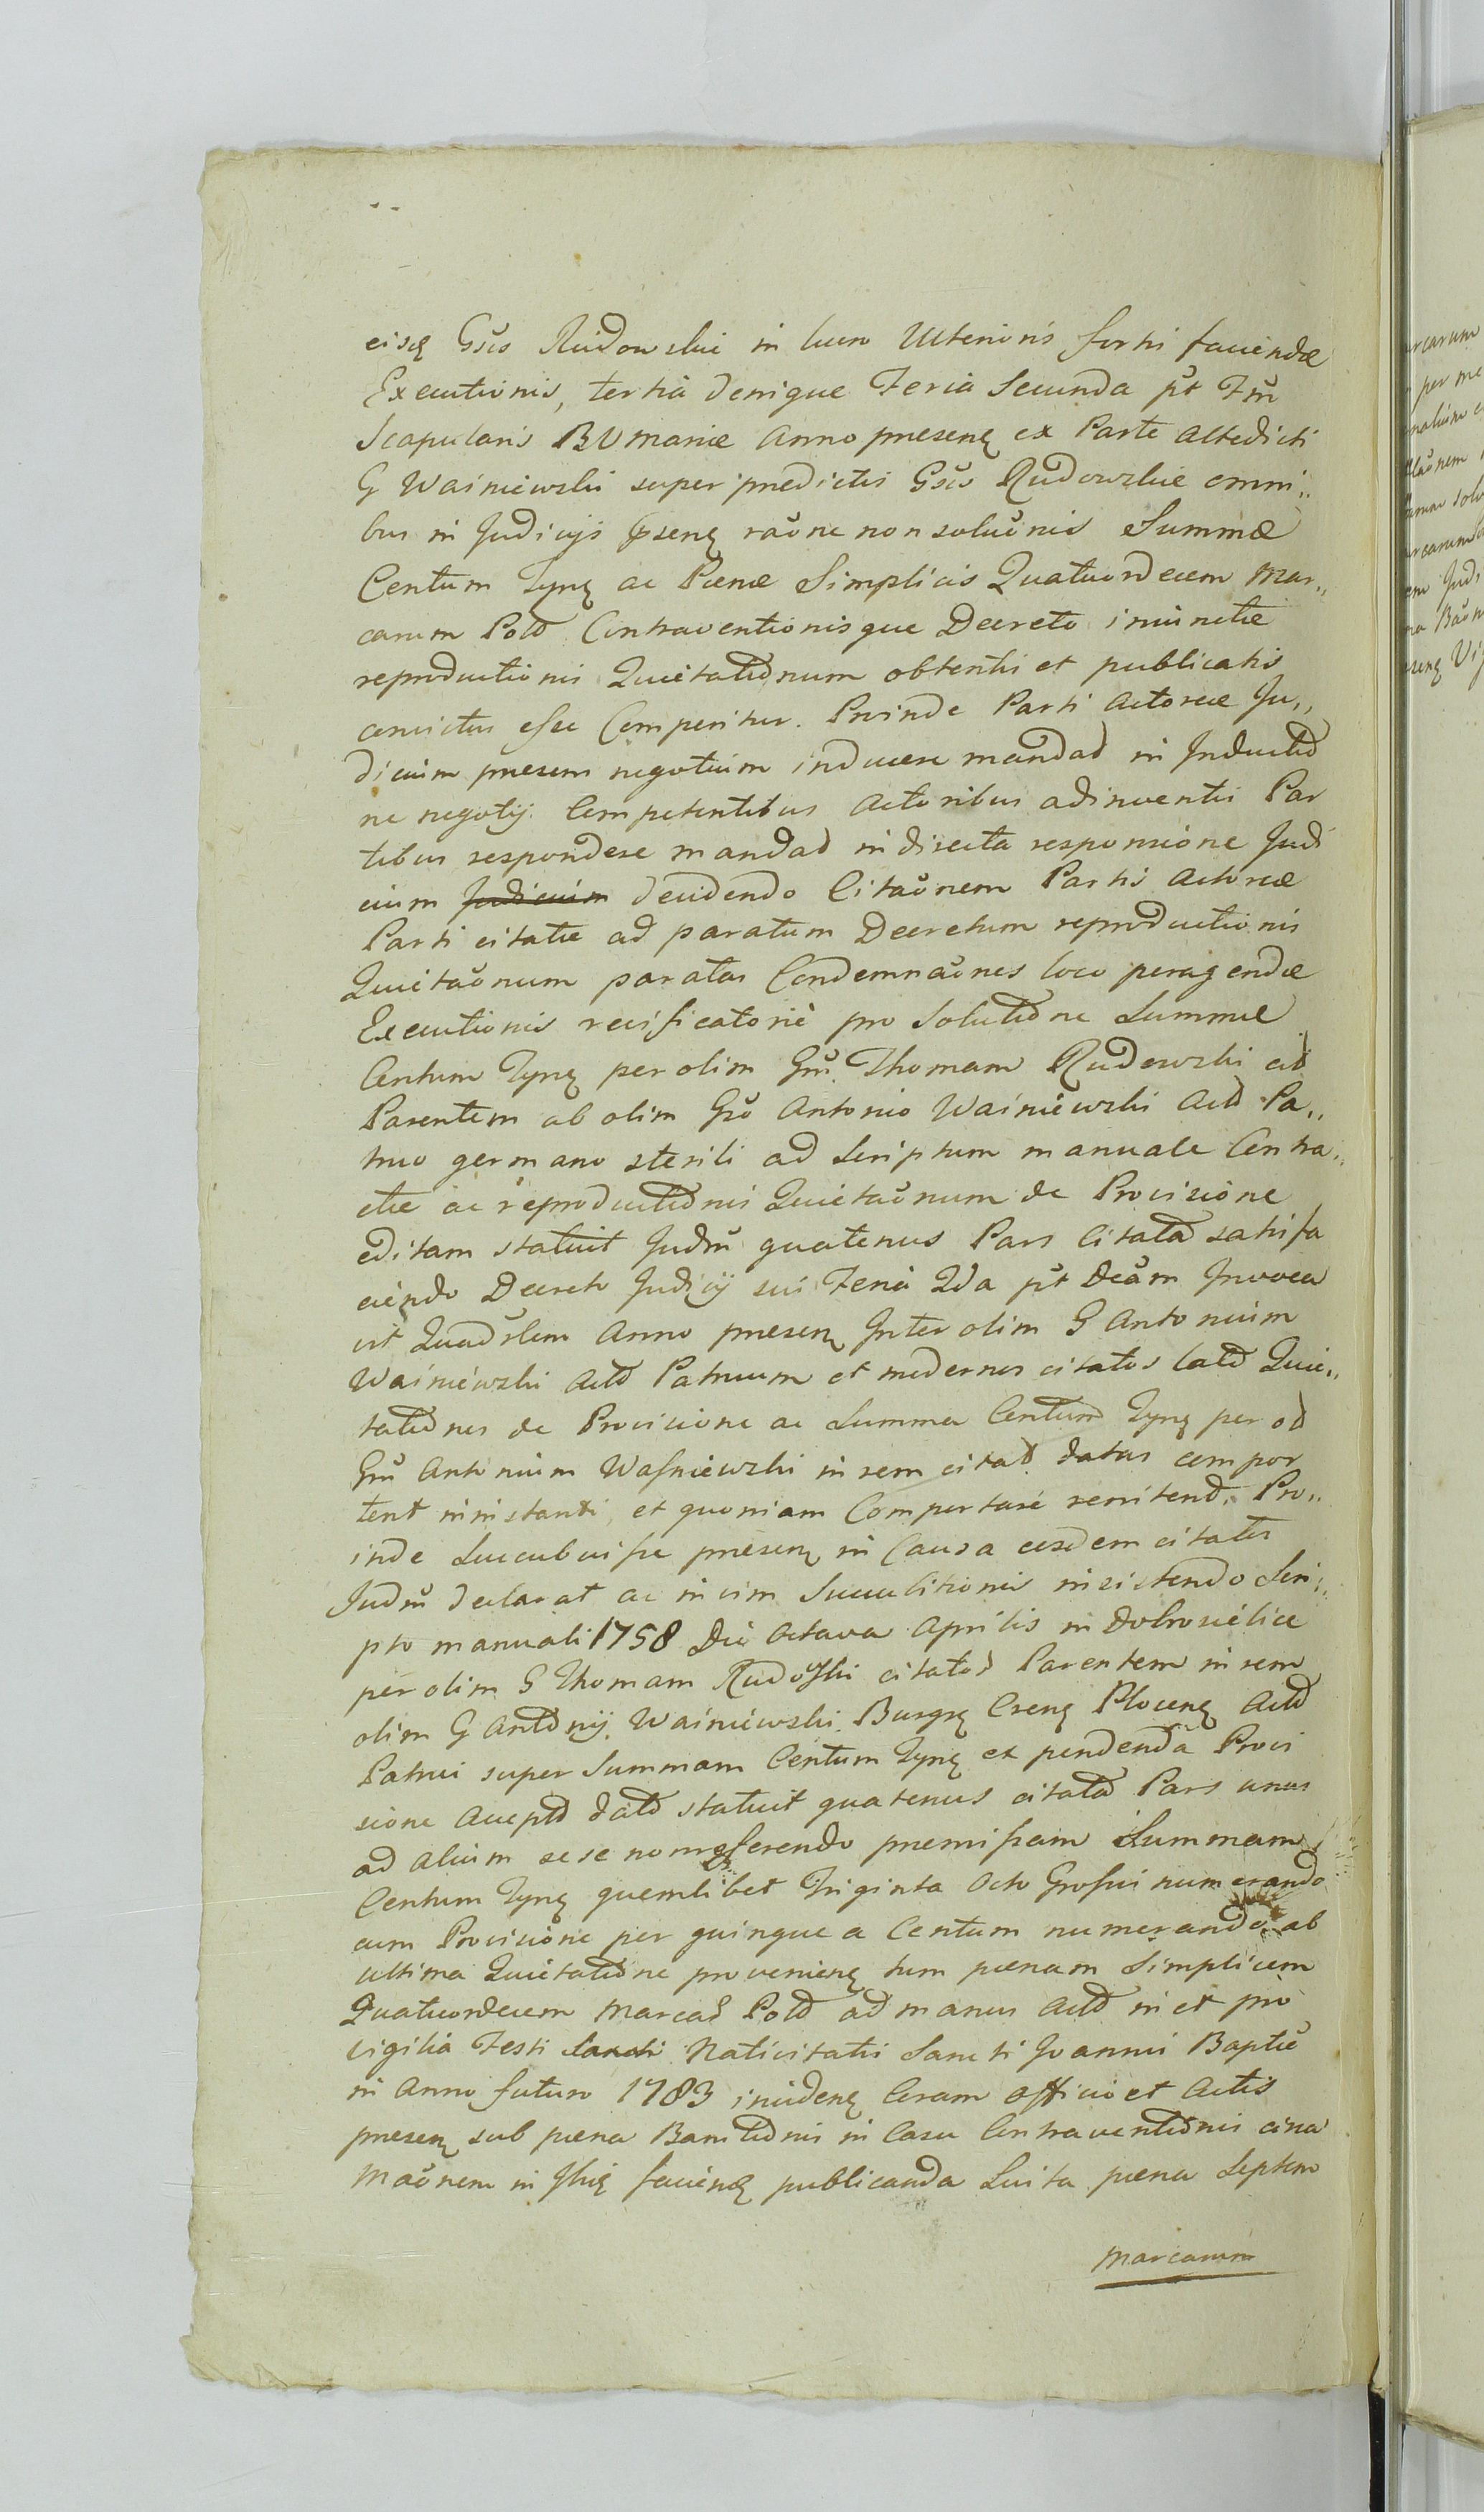 eisq Gsis Rudowskie in luco Ulterioris fortii faciendæ
Executionis, tertia denique Feria Secunda pt Ftū
Scapularis BVMariæ Anno præsenę ex Parte altedicti
G Waśniewski super prædictis Gsis Rudowskie omni„
bus in Judicijs Præsenę raōne non soluōnis Summæ
Centum Tynę ac Pænæ Simplicis Quatuordecem Mar„
carum Polō Contraventionisque Decreto iniunctæ
reproductionis Quietatōnum obtentis et publicatis
convictus esse Comperitur. Proinde Parti Actoreæ Ju„
dicium præsens negotium inducere mandad in Inductō
ne negotij Competentibus Actoribus adinventis Par
tibus respondere mandad in directa responsione Judi
cium Judicium decidendo Citaōnem Partis Actoreæ
Parti citatæ ad paratum Decretum reproductionis
Quietaōnum paratas Condemnaōnes loco peragendæ
Executionis reificatoriè pro Solutōne Summæ
Centum Tynę per olim Gm̄ Thomam Rudowski cit
Parentem ab olim Gsō Antonio Waśniewski Actō Pa„
truo germano sterili ad Scriptum manuale Contra„
ctæ ac reproductōnis Quietaōnum de Provisione
editam statuit Judm̄ quatenus Pars Citata satisfa
ciendo Decreto Judicij sui Feria 2da pt Dcām Invoca
vit Quadrlem Anno præsenę Inter olim G Antonium
Waśniewski Actō Patruum et modernos citatos latō Quie„
tatōnes de Provisione ac Summa Centum Tynę per od
Gm̄ Antonium Wasniewski in rem citad datas compor
tent ninistanti, et quoniam Comportare renitend. Pro„
inde Succubuisse præsenę in Causa eosdem citatos
Judm̄ declarat ac in vim Succubitionis insistendo Scri„
pto manuali 1758 Die Octava Aprilis in Dobrosielice
per olim G Thomam Rudoski citatos Parentem in rem
olim G Antōnij Waśniewski Burgrę Crenę Plocenę Actō
Patrui super Summam Centum Tynę et pendenda Provi
sione Acceptō datō statuit quatenus citata Pars unus
ad alium se se non referendo præmissam Summam
Centum Tynę quemlibet Triginta Octo Grossis numerando
cum Provisione per quinque a Centum numerando ab
ultima Quietatōne provenienę tum pænam Simplicem
Quatuordecem Marcas Polō ad manus Actō in et pro
vigilia Festi Sancti Nativitatis Sancti Joannis Baptæ
in Anno futuro 1783 incidenę Coram Officio et Actis
præsenę sub pæna Banitōnis in Casu Contraventōnis circa
Maōnem in Ihię facienę publicanda Luita pæna Septem
Marcarum